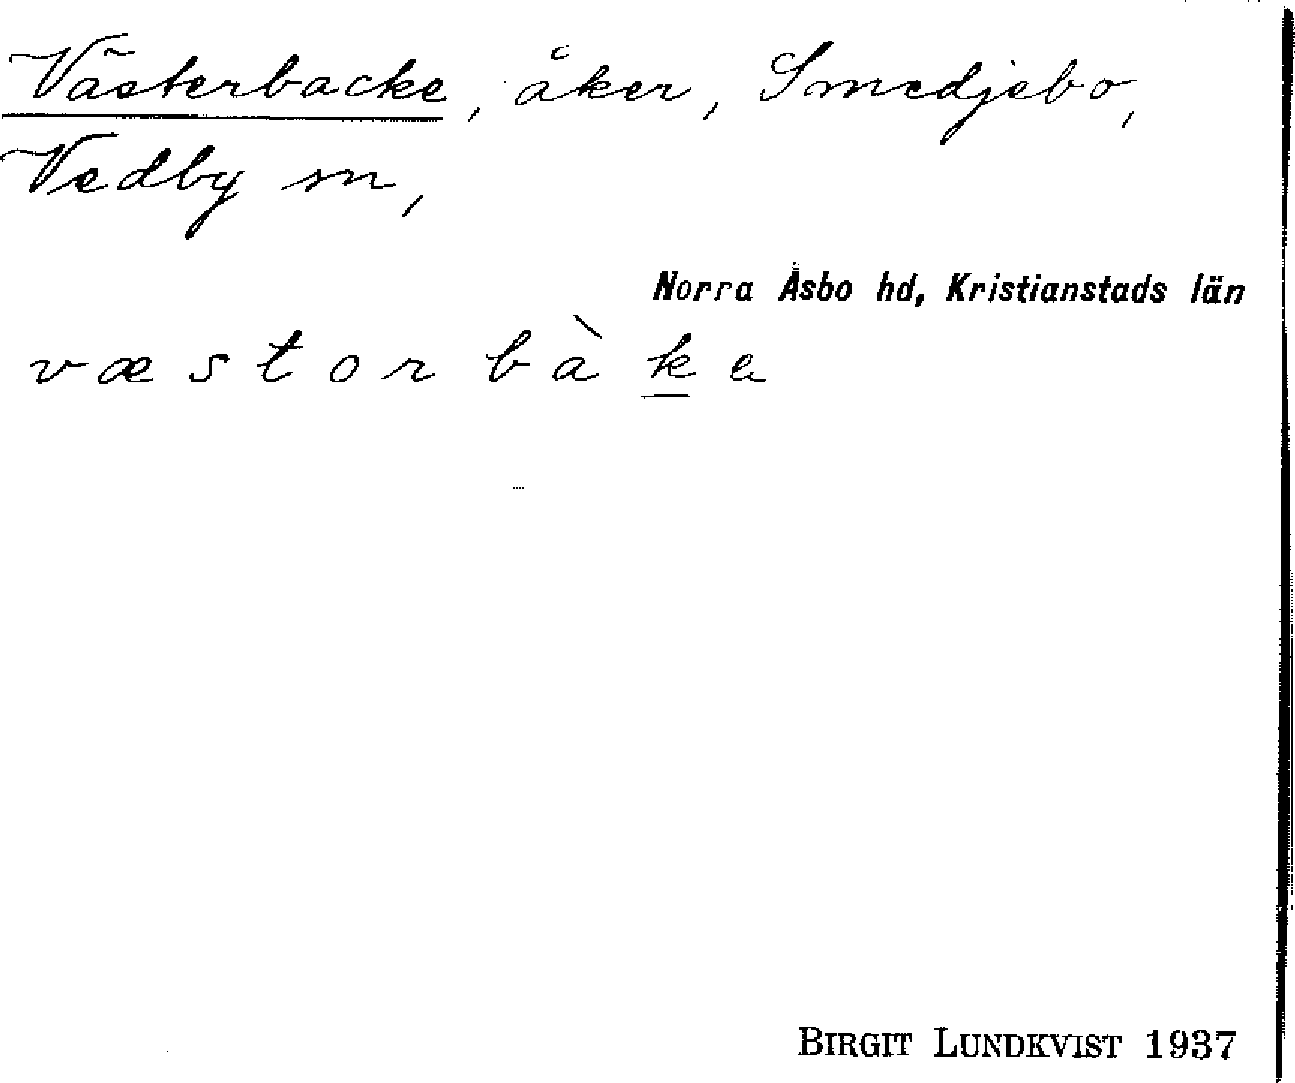 Västerbacke, åker, Smedjebo,
Vedby sn,
Norra Åsbo hd, Kristianstads län
væstor bàke
BIRGIT LUNDKVIST 1937